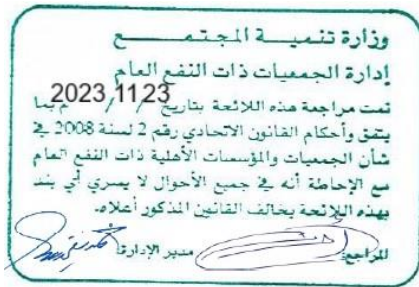 وزارة تنميـــة المجتمـــــع
إدارة الجمعيات ذات النفع العام
تمت مراجعة هذه اللائحة بتاريخ 23 / 11 / 2023 م بما
يتفق وأحكام القانون الاتحادي رقم 2 لسنة 2008 في
شأن الجمعيات والمؤسسات الأهلية ذات النفع العام
مع الإحاطة أنه في جميع الأحوال لا يسري أي بند
بهذه اللائحة يخالف القانون المذكور أعلاه.
المراجع: مدير الإدارة: